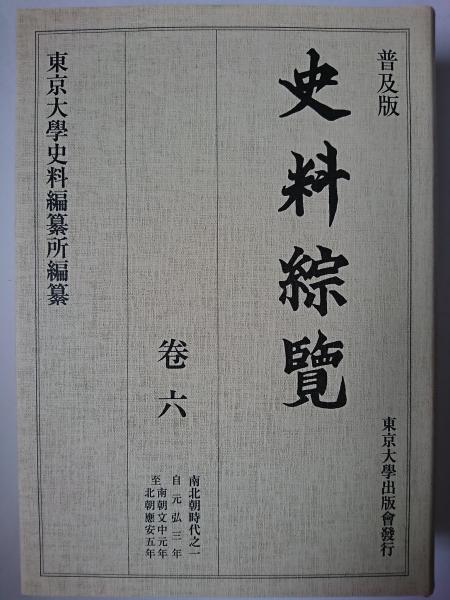 普及版
史料綜覽
東京大學出版會發行
卷六
南北朝時代之一
自元弘三年
至南朝文中元年
北朝應安五年
東京大學史料編纂所編纂